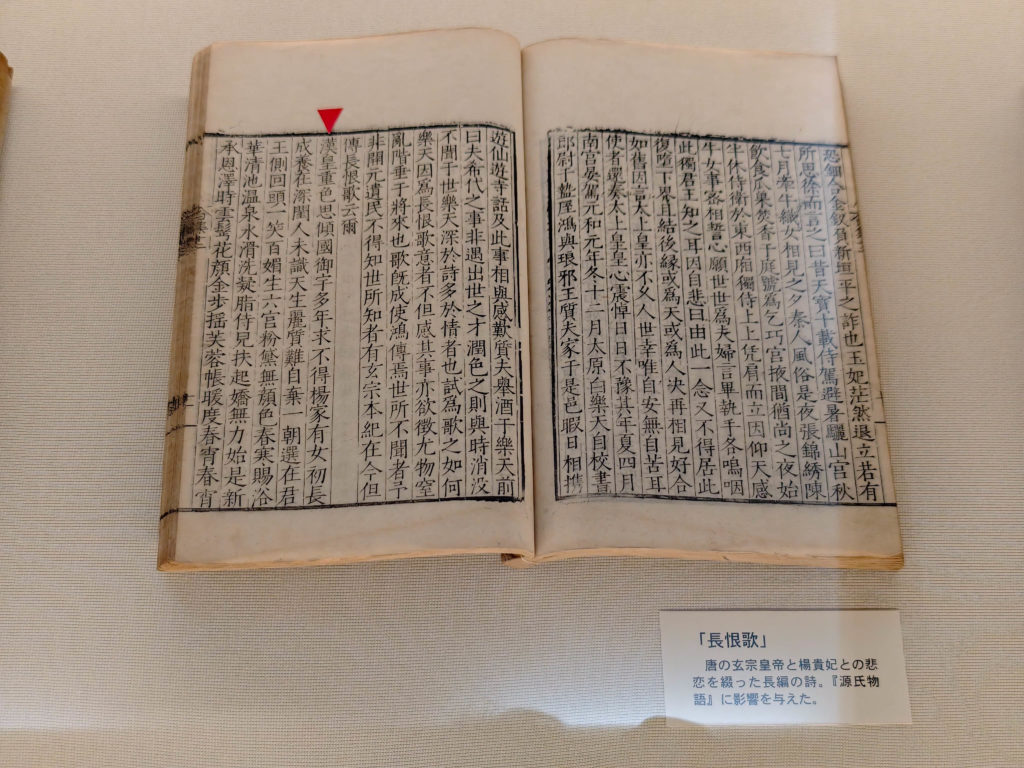 恐鈿合金釵負新垣平之詐也玉妃茫然退立若有
所思徐而言之曰昔天寶十載侍駕避暑驪山宮秋
七月牽牛織女相見之夕秦人風俗是夜張錦綉陳
飲食瓜菓焚香于庭號為乞巧宮掖間猶尚之夜始
半休侍衛於東西廂獨侍上上凭肩而立因仰天感
牛女事密相誓心願世世為夫婦言畢執手各嗚咽
此獨君王知之耳因自悲曰由此一念又不得居此
復墮下界且結後緣或為天或為人决再相見好合
如舊因言太上皇亦不久人世幸唯自安無自苦耳
使者還奏太上皇皇心震悼日日不豫其年夏四月
南宮晏駕元和元年冬十二月太原白樂天自校書
郎尉于盩厔鴻與琅邪王質夫家于是邑暇日相攜
遊仙遊寺話及此事相與感歎質夫舉酒于樂天前
曰夫希代之事非遇出世之才潤色之則與時消没
不聞于世樂天深於詩多於情者也試為歌之如何
樂天因為長恨歌意者不但感其事亦欲徵尤物窒
亂階垂于將來也歌旣成使鴻傳焉世所不聞者予
非開元遺民不得知世所知者有玄宗本紀在今但
傳長恨歌云爾
漢皇重色思傾國御宇多年求不得楊家有女初長
成養在深閨人未識天生麗質難自棄一朝選在君
王側回頭一笑百媚生六宮粉黛無顔色春寒賜浴
華清池温泉水滑洗凝脂侍兒扶起嬌無力始是新
承恩澤時雲鬢花顔金步搖芙蓉帳暖度春宵春宵
「長恨歌」
唐の玄宗皇帝と楊貴妃との悲
恋を綴った長編の詩。『源氏物
語』に影響を与えた。